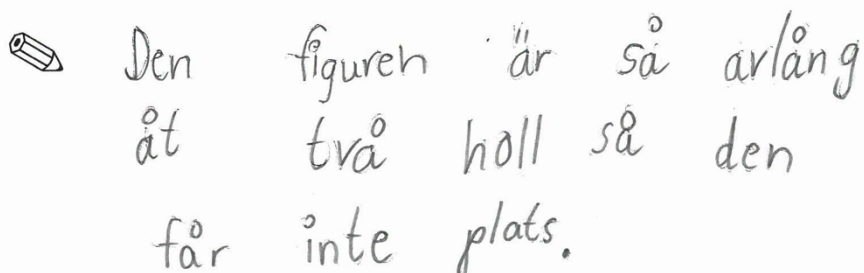 Den figuren är så avlång
åt två holl så den
får inte plats.